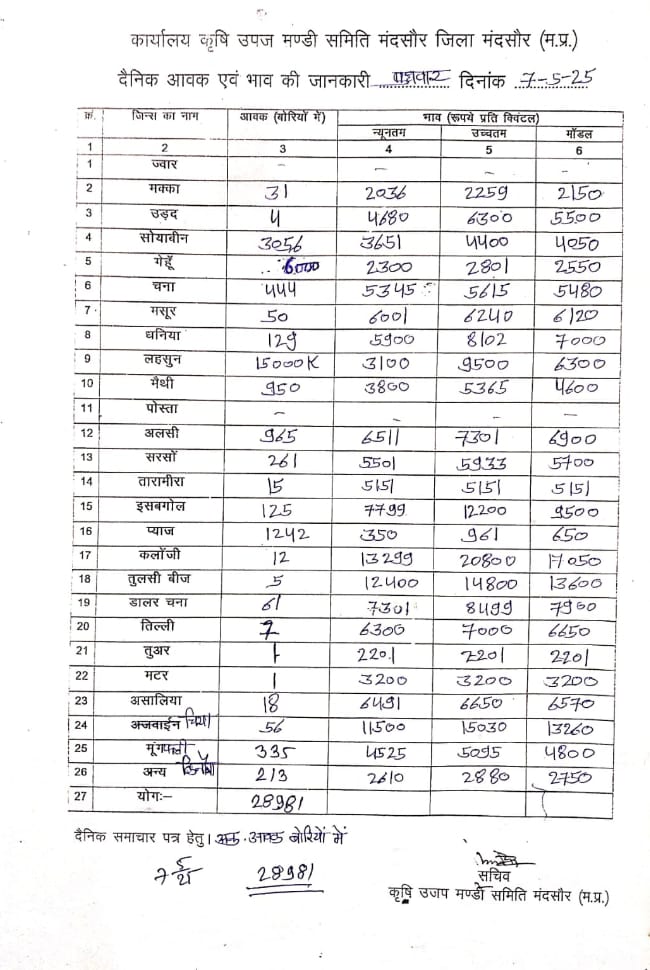 कार्यालय कृषि उपज मण्डी समिति मंदसौर जिला मंदसौर (म.प्र.)
दैनिक आवक एवं भाव की जानकारी दिनांक 7-5-25
क्रं. जिन्स का नाम आवक (बोरियों में) भाव (रूपये प्रति क्विंटल)
न्यूनतम उच्चतम मॉडल
1 2 3 4 5 6
1 ज्वार – – – –
2 मक्का 31 2036 2259 2150
3 उड़द 4 4680 6300 5500
4 सोयाबीन 3056 3651 4400 4050
5 गेहूँ 6000 2300 2801 2550
6 चना 444 5345 5615 5480
7 मसूर 50 6001 6240 6120
8 धनिया 129 5900 8102 7000
9 लहसुन 15000K 3100 9500 6300
10 मैथी 950 3800 5365 4600
11 पोस्ता – – – –
12 अलसी 965 6511 7301 6900
13 सरसों 261 5501 5933 5700
14 तारामीरा 15 5151 5151 5151
15 इसबगोल 125 7799 12200 9500
16 प्याज 1242 350 961 650
17 कलौंजी 12 13299 20800 17050
18 तुलसी बीज 5 12400 14800 13600
19 डालर चना 61 7301 8499 7900
20 तिल्ली 7 6300 7000 6650
21 तुअर 1 2201 2201 2201
22 मटर 1 3200 3200 3200
23 असालिया 18 6491 6650 6570
24 अजवाईन चिया 56 11500 15030 13260
25 मूंगफली 335 4525 5095 4800
26 अन्य 213 2610 2880 2750
27 योगः– 28981
दैनिक समाचार पत्र हेतु। आवक बोरियों में
7 5/25 28981
सचिव
कृषि उजप मण्डी समिति मंदसौर (म.प्र.)